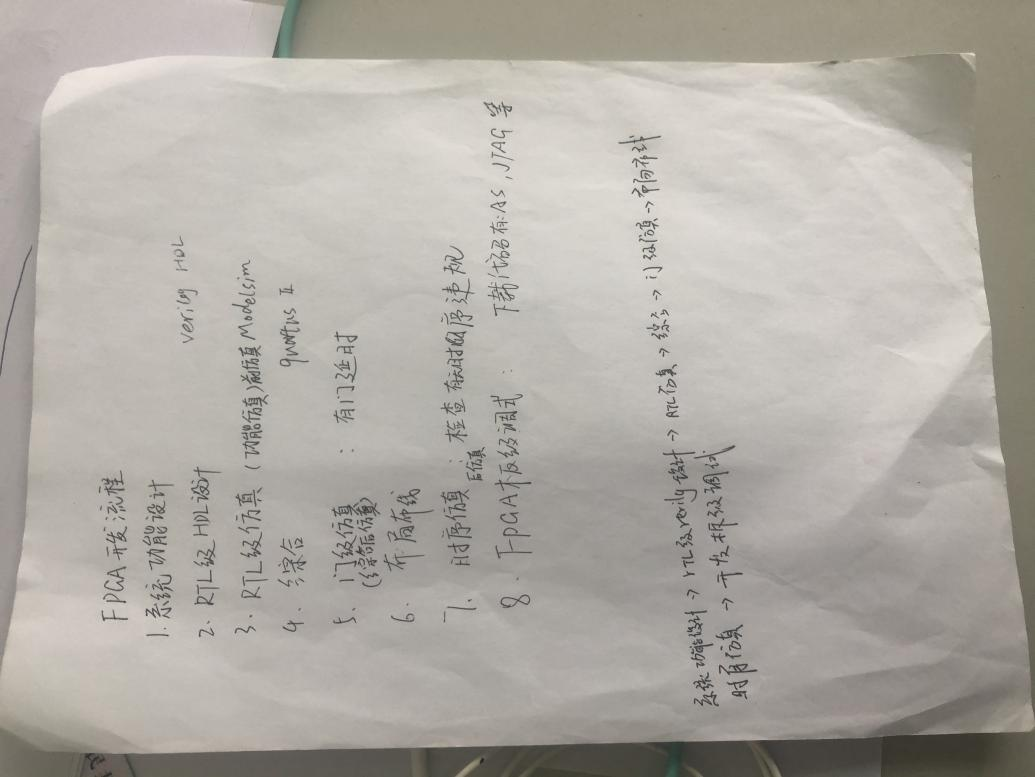 FPGA开发流程
1. 系统功能设计
2. RTL级HDL设计 verilog HDL
3. RTL级仿真 (功能仿真)前仿真 Modelsim
4. 综合 quartus II
5. 门级仿真 : 有门延时
(综合后仿真)
6. 布局布线
7. 时序仿真 : 检查有无时序违规
后仿真
8. FPGA板级调式 : 下载代码有:AS, JTAG 等
系统功能设计→RTL级verilog设计→RTL仿真→综合→门级仿真→布局布线
时序仿真→开发板级调试